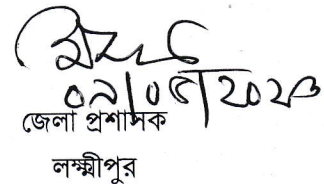 ০৭।০৫।২০২৩
জেলা প্রশাসক
লক্ষ্মীপুর